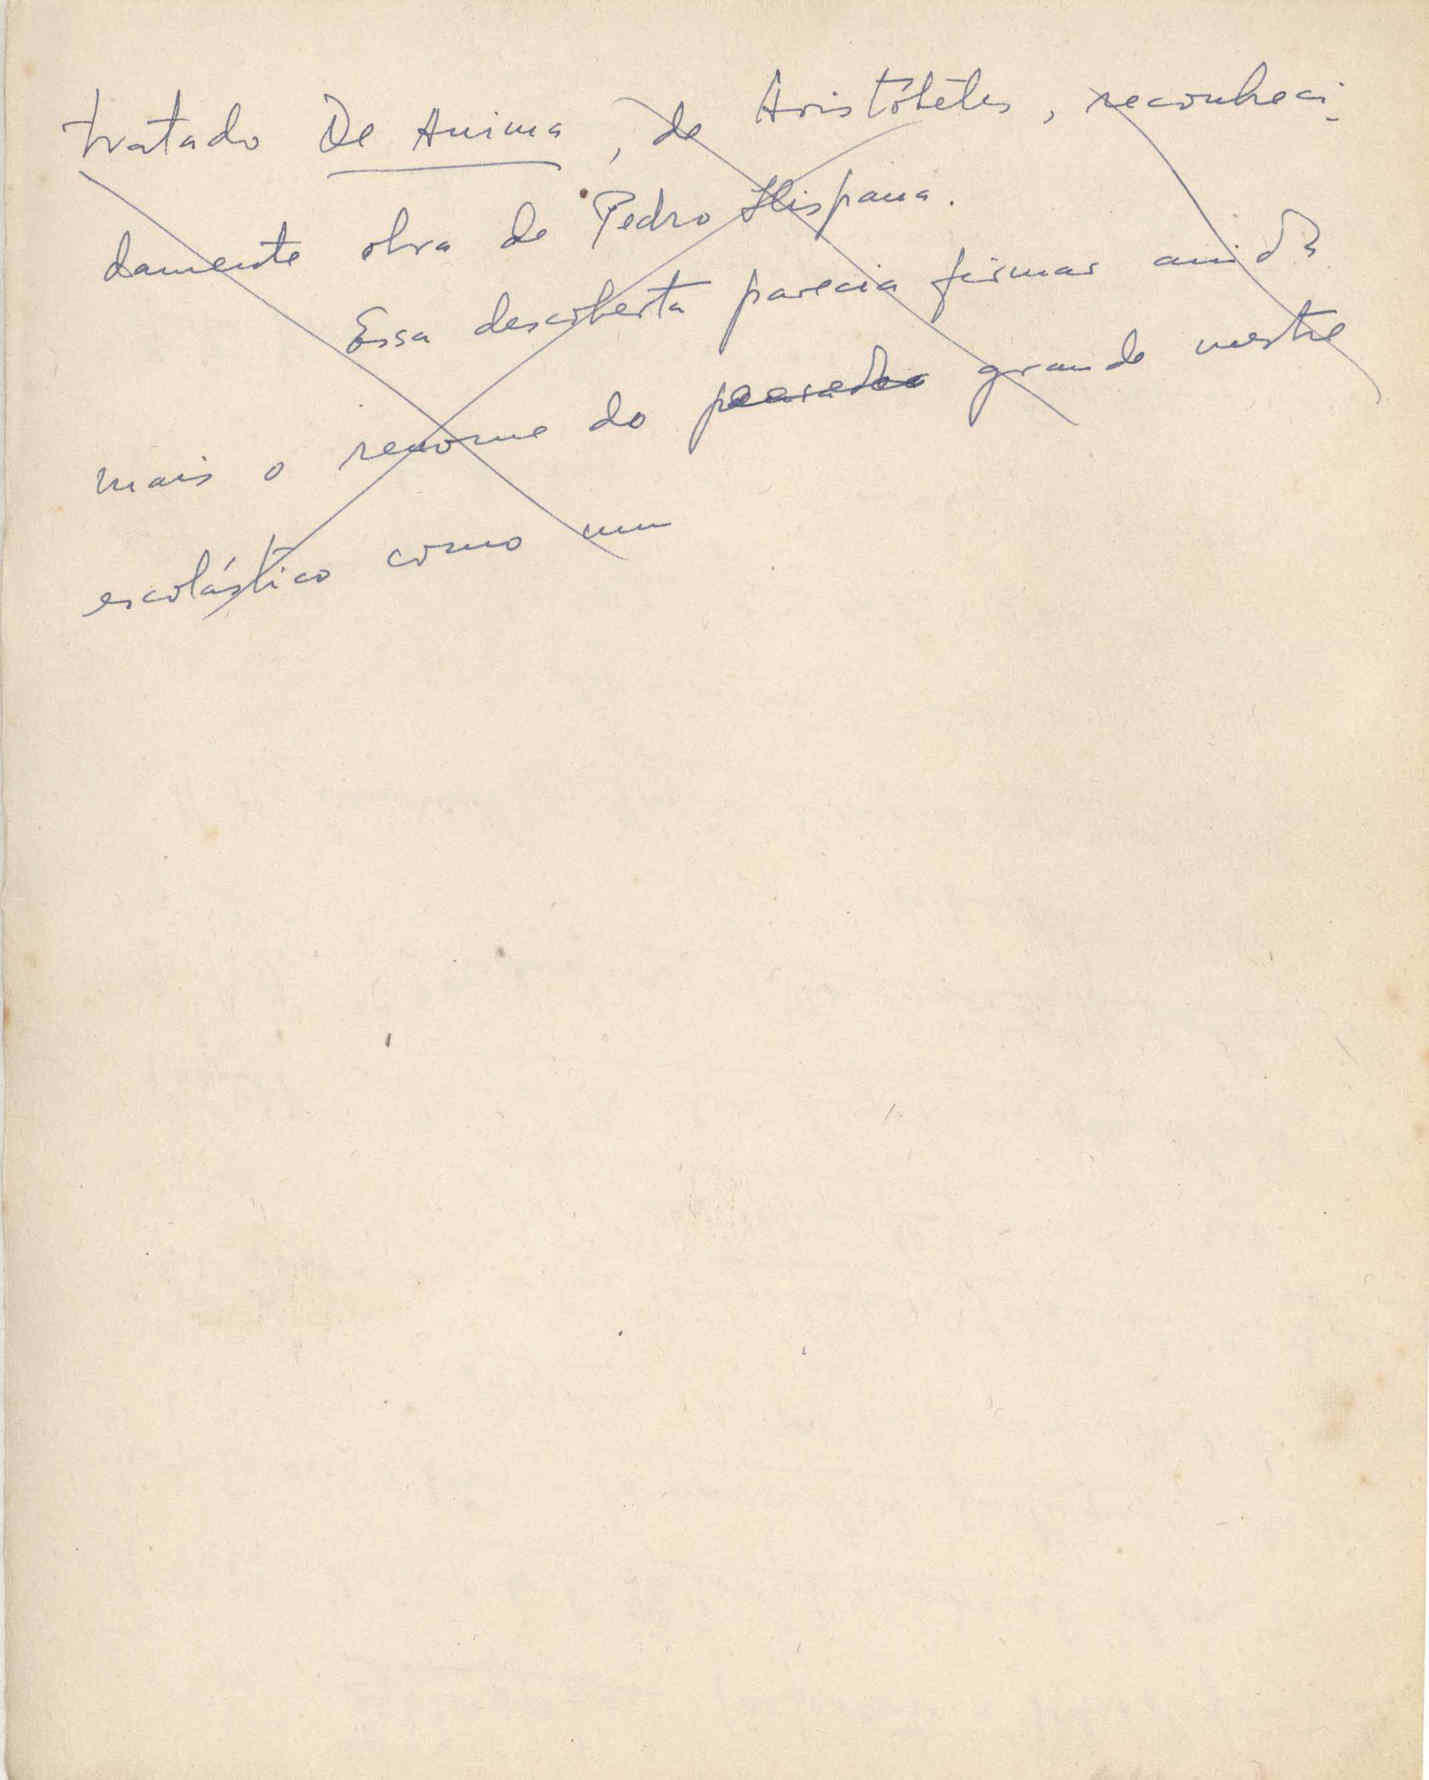 tratado De Anima, de Aristóteles, reconheci-
damente obra de Pedro Hispana.
Essa descoberta parecia firmar ainda
mais o renome do grande mestre
escolástico como um